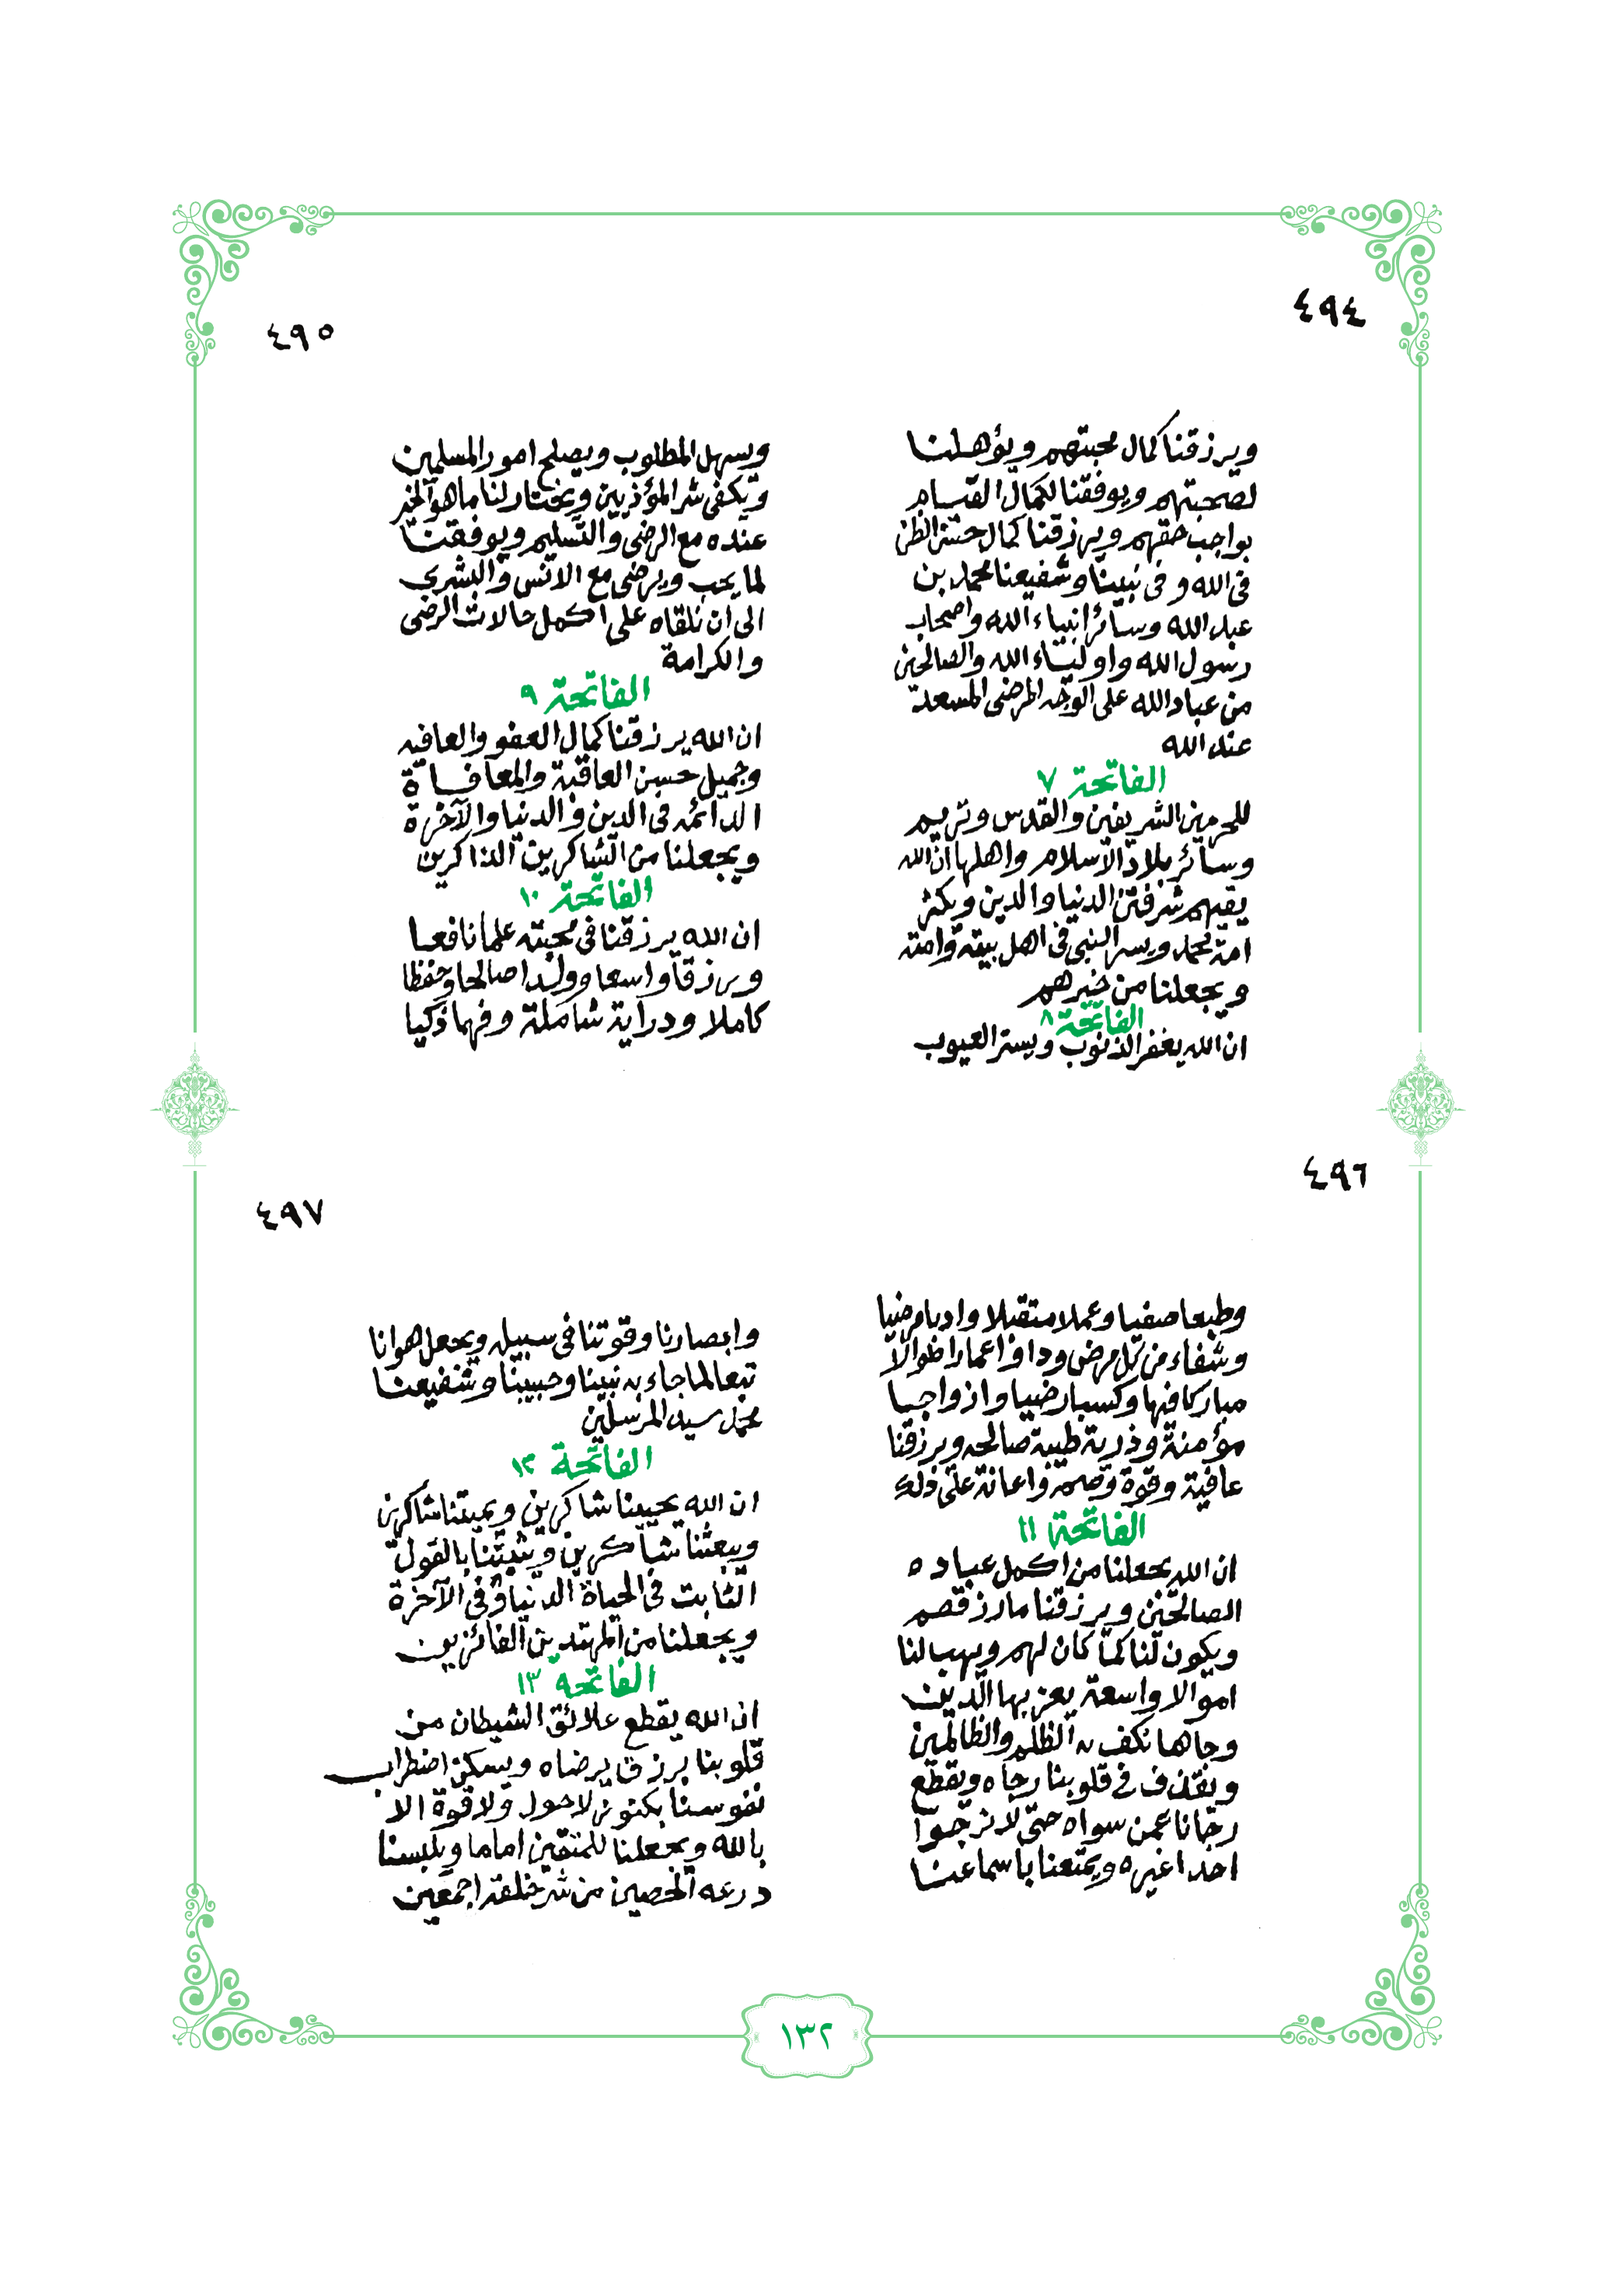 ٤٩٤
ويرزقنا كمال محبتهم ويؤهلنا
لصحبتهم ويوفقنا لكمال القيام
بواجب حقهم ويرزقنا كمال حسن الظن
في الله وفي نبينا وشفيعنا محمد بن
عبد الله وسائر انبياء الله واصحاب
رسول الله واولياء الله والصالحين
من عباد الله على الوجه المرضي المسعد
عند الله
الفاتحة ٧
للحرمين الشريفين والقدس وتريم
وسائر بلاد الاسلام واهلها ان الله
يقيهم شر فتن الدنيا والدين ويكثر
امة محمد ويسر النبي في اهل بيته وامته
ويجعلنا من خيرهم
الفاتحة ٨
ان الله يغفر الذنوب ويستر العيوب
٤٩٥
ويسهل المطلوب ويصلح امور المسلمين
ويكفى شر المؤذيين ويختار لنا ما هو الخير
عنده مع الرضى والتسليم ويوفقنا
لما يحب ويرضى مع الانس والبشرى
الى ان نلقاه على اكمل حالات الرضى
والكرامة
الفاتحة ٩
ان الله يرزقنا كمال العفو والعافيه
وجميل حسن العاقبة والمعافاة
الدائمه في الدين والدنيا والآخرة
ويجعلنا من الشاكرين الذاكرين
الفاتحة ١٠
ان الله يرزقنا في محبته علما نافعا
ورزقا واسعا وولدا صالحا وحفظا
كاملا ودراية شاملة وفهما ذكيا
٤٩٦
وطبعا صفيا وعملا متقبلا وادبا مرضيا
وشفاء من كل مرض وداء واعمارا طوالا
مباركا فيها وكسبا رضيا وازواجا
مؤمنة وذرية طيبة صالحه ويرزقنا
عافية وقوة وهمة واعانة على ذلك
الفاتحة ١١
ان الله يجعلنا من اكمل عباده
الصالحين ويرزقنا ما رزقهم
ويكون لنا كما كان لهم ويهب لنا
اموالا واسعة يعز بها الدين
وجاها نكف به الظلم والظالمين
ويقذف في قلوبنا رجاه ويقطع
رجانا عمن سواه حتى لا نرجوا
احدا غيره ويمتعنا باسماعنا
٤٩٧
وابصارنا وقوتنا في سبيله ويجعل هوانا
تبعا لما جاء به نبينا وحبيبنا وشفيعنا
محمد سيد المرسلين
الفاتحة ١٢
ان الله يحيينا شاكرين ويميتنا شاكرين
ويبعثنا شاكرين ويثبتنا بالقول
الثابت في الحياة الدنيا وفي الآخرة
ويجعلنا من المهتدين الفائزين
الفاتحة ١٣
ان الله يقطع علائق الشيطان من
قلوبنا برزق يرضاه ويسكن اضطراب
نفوسنا بكنوز لاحول ولا قوة الا
بالله ويجعلنا للمتقين اماما ويلبسنا
درعه الحصين من شر خلقه اجمعين
١٣٢